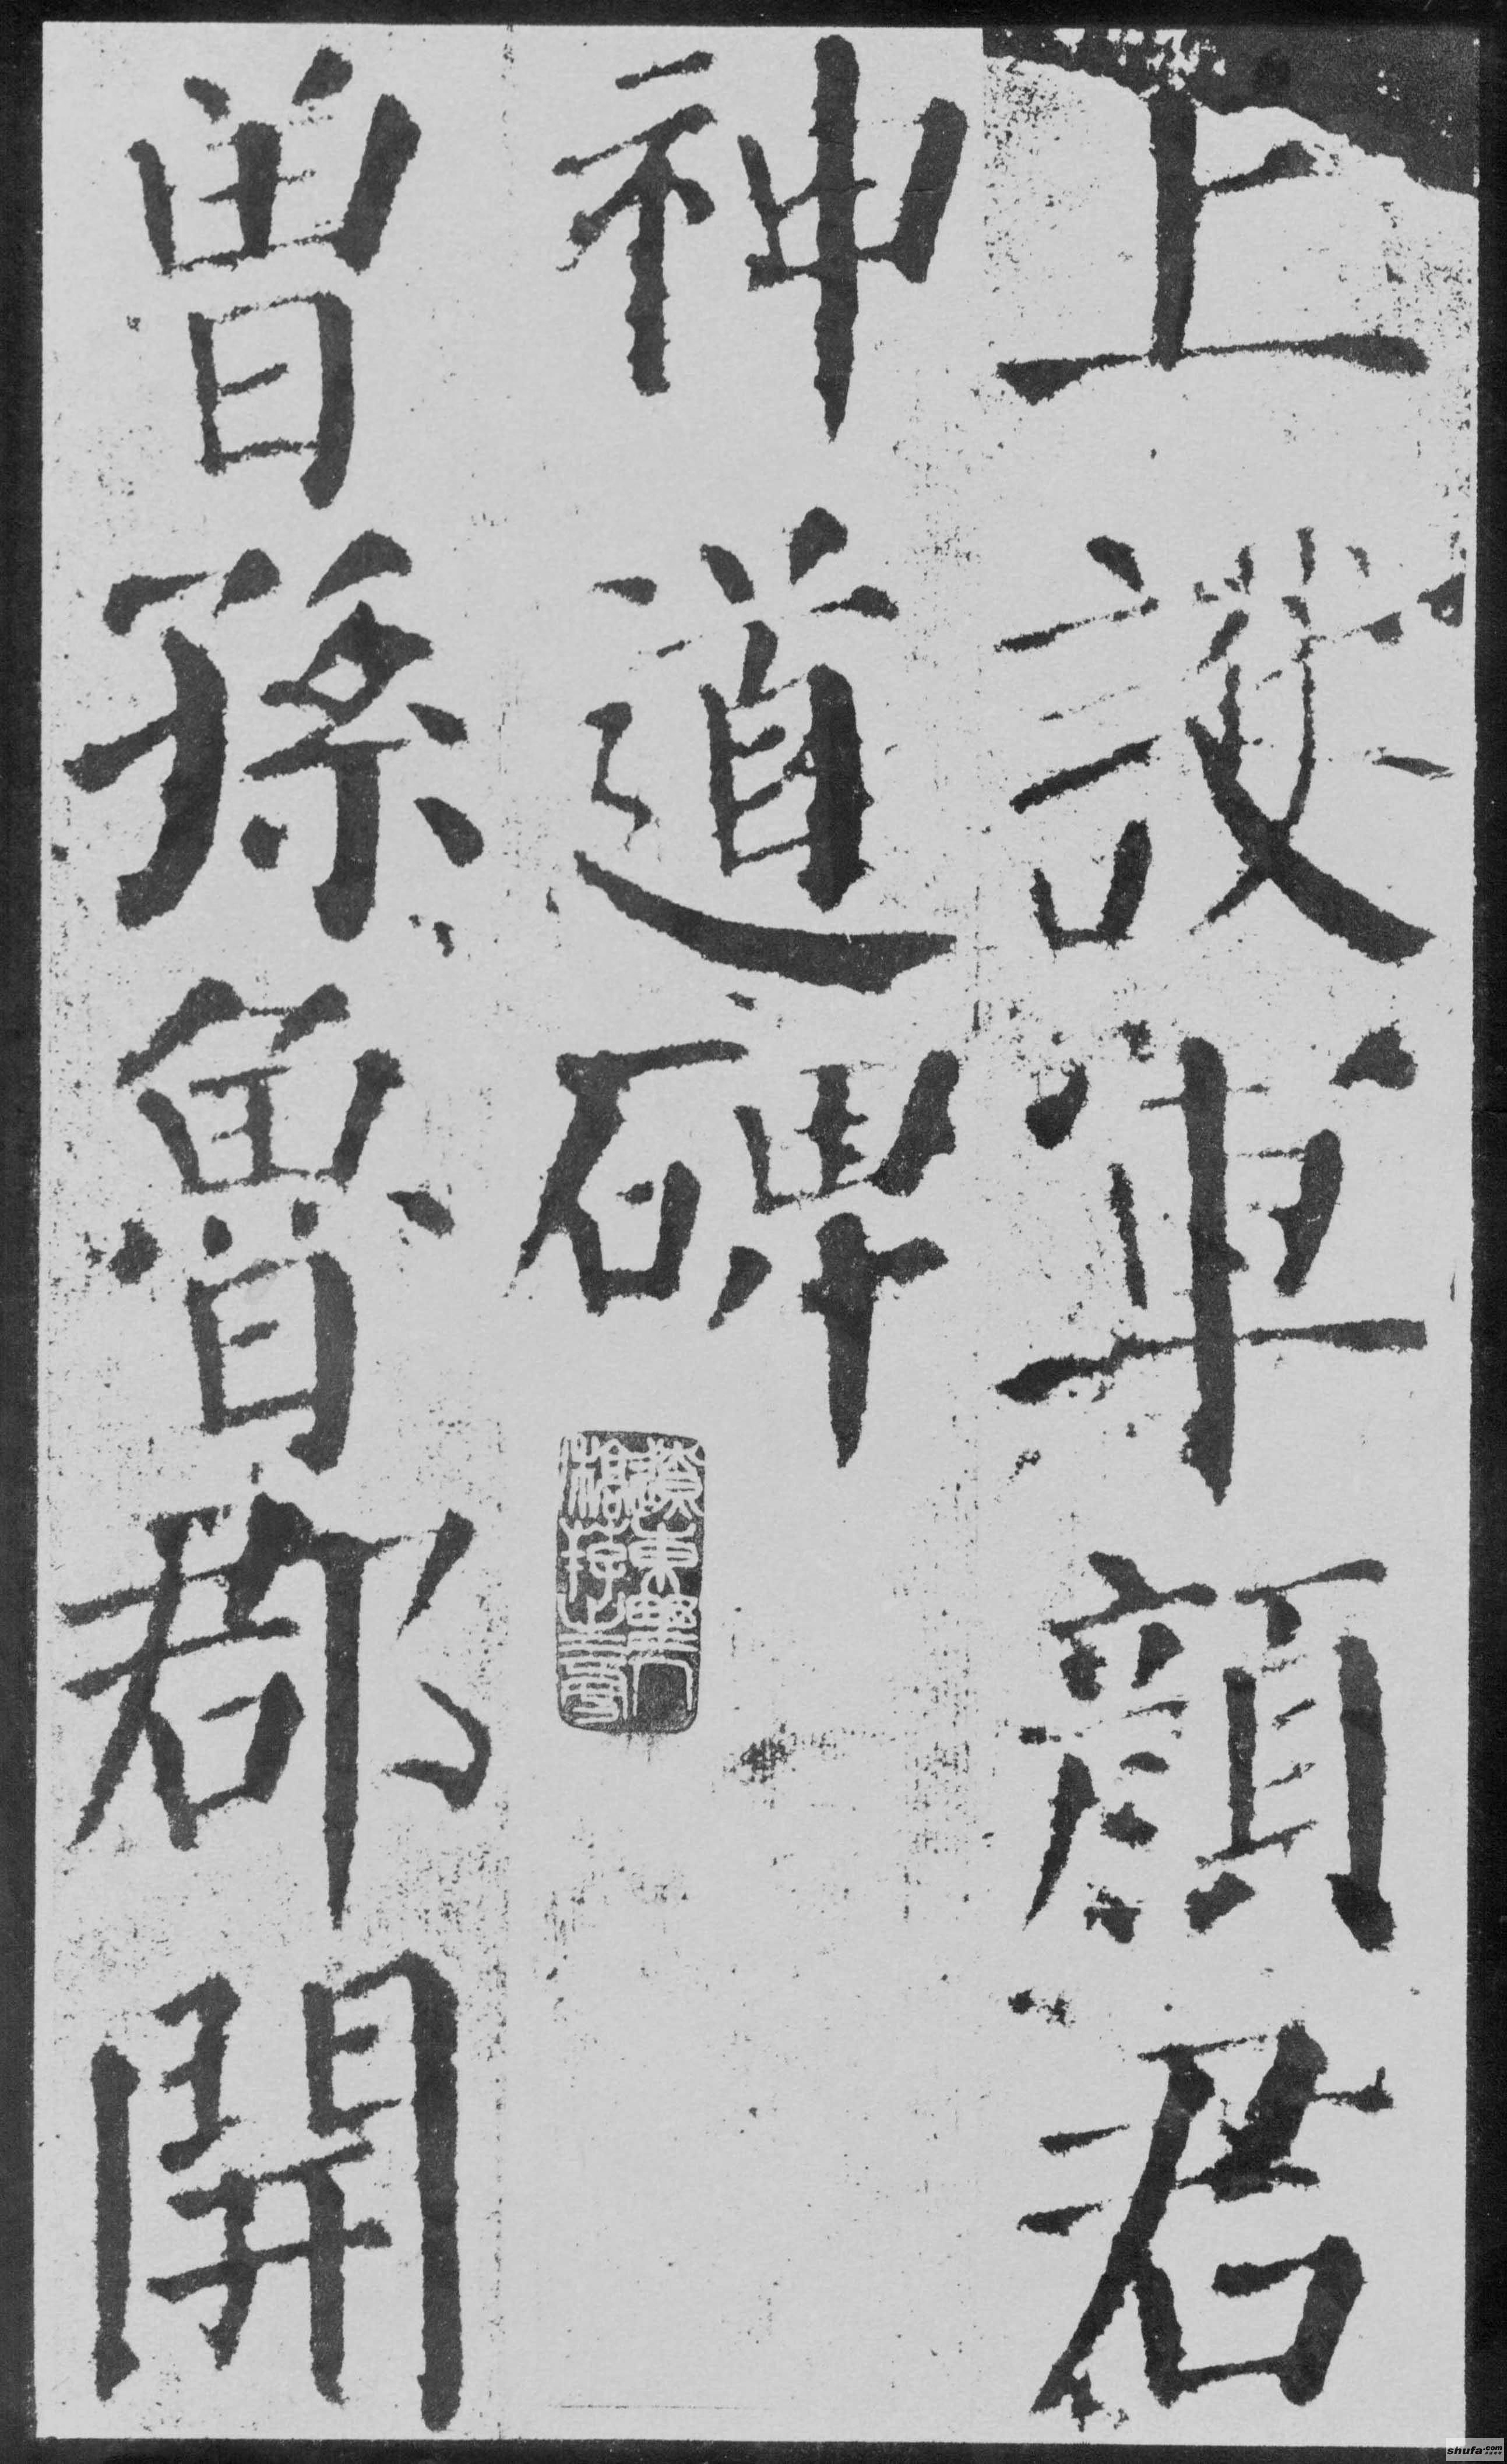 上護軍顏君
神道碑
曾孫魯郡開
shufa.com